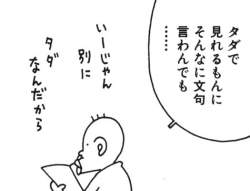 タダで
見れるもんに
そんなに文句
言わんでも
……
いーじゃん
別に
タダ
なんだから